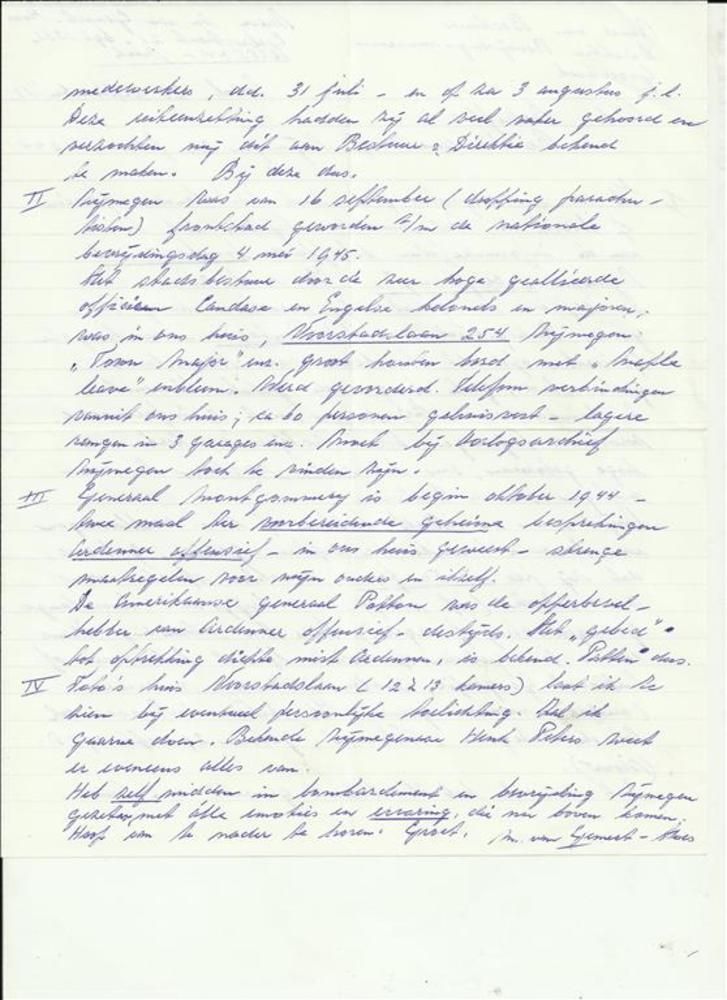 medewerkers, d.d. 31 juli - en of za 3 augustus j.l.
Deze uiteenzetting hadden zij al veel vaker gehoord en
verzochten mij dit aan Bestuur & Direktie bekend
te maken. Bij deze dus.
II Nijmegen was van 16 september (dropping parachu-
tisten) frontstad geworden t/m de nationale
bevrijdingsdag 4 mei 1945.
Het stadsbestuur door de zeer hoge geallieerde
officieren Candase en Engelse kolonels en majoren,
was in ons huis, Voorstadslaan 254 Nijmegen.
"Town Major" enz. groot houten bord met "Maple
leave" embleem. Werd gevorderd. Telefoon verbindingen
vanuit ons huis; ca 60 personen gehuisvest - lagere
rangen in 3 garages enz. Moet bij Oorlogsarchief
Nijmegen toch te vinden zijn.
III Generaal Montgommery is begin oktober 1944 -
twee maal ter voorbereidende geheime besprekingen
Ardenner offensief - in ons huis geweest - strenge
maatregelen voor mijn ouders en ikzelf.
De Amerikaanse generaal Patton was de opperbevel-
hebber van Ardenner offensief - destijds. Het "gebed"
tot optrekking dichte mist Ardennen, is bekend. "Patton" dus.
IV Foto's huis Voorstadslaan (12 à 13 kamers) laat ik U
zien bij eventueel persoonlijke toelichting. Zal ik
gaarne doen. Bekende Nijmegenaar Henk Peters weet
er eveneens alles van.
Heb zelf midden in bombardement en bevrijding Nijmegen
gezeten, met álle emoties en ervaring, die nu boven komen.
Hoop van U nader te horen. Groet, M. van Gemert -